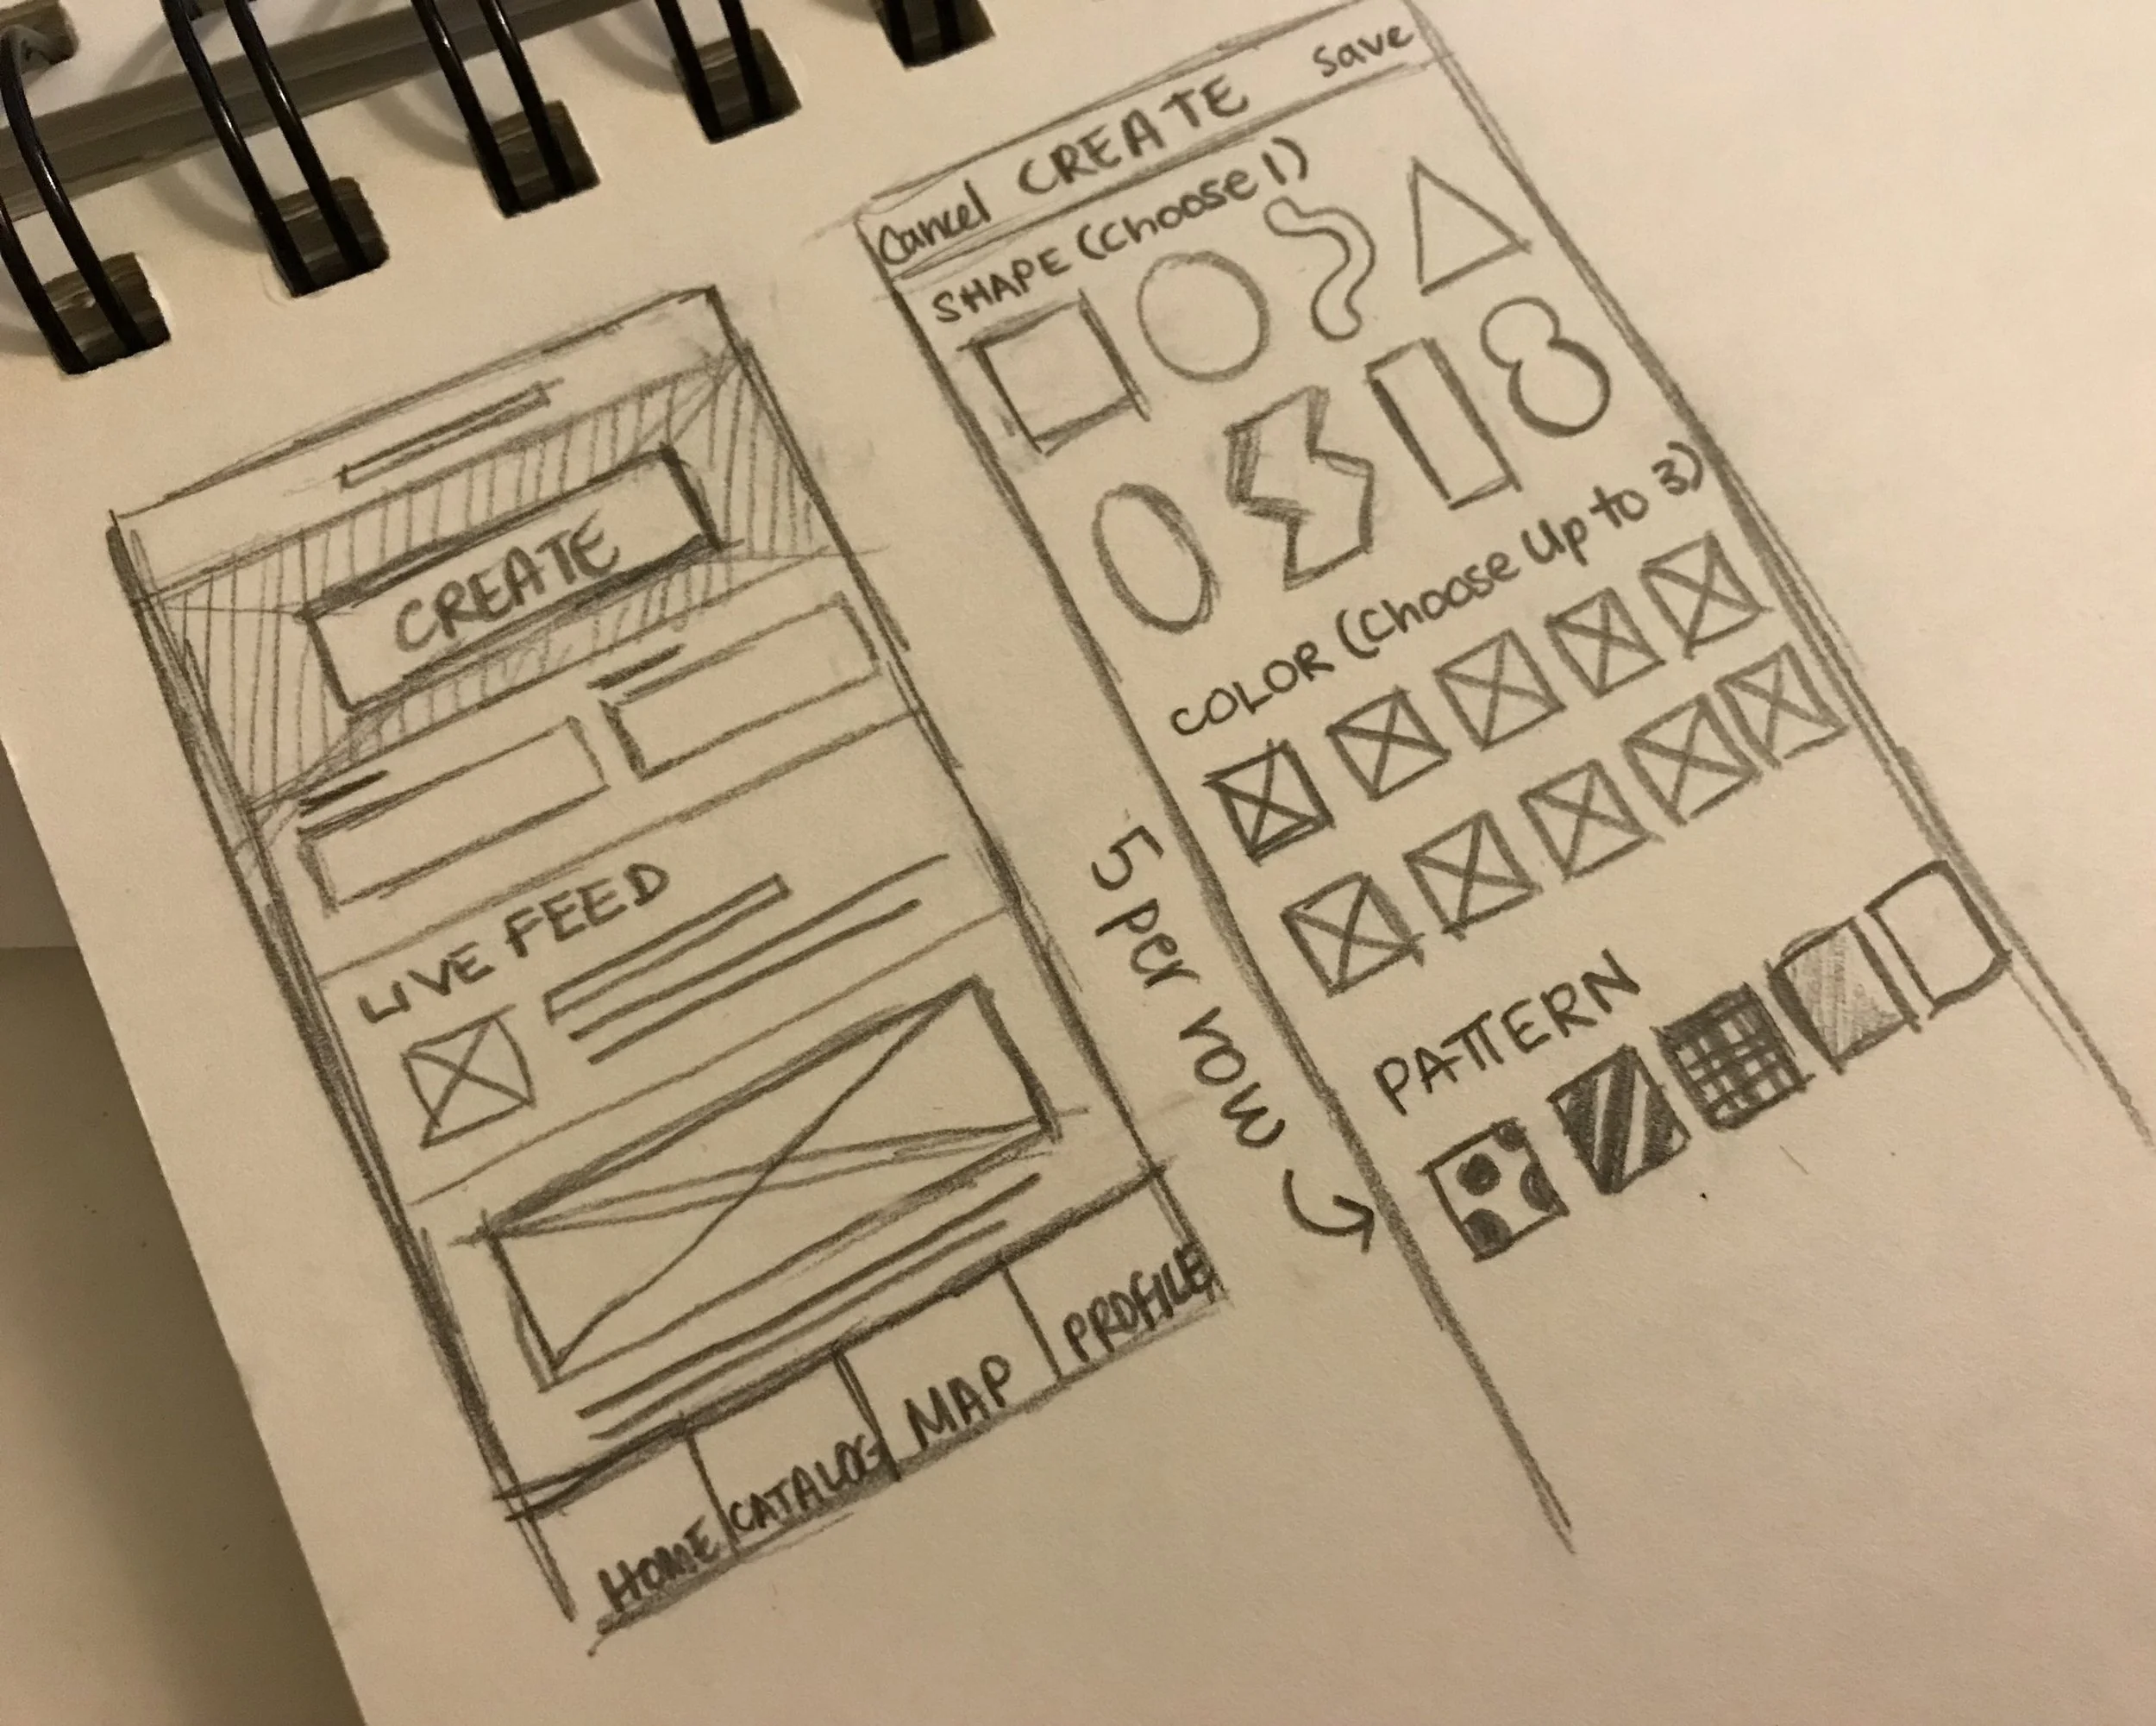 CREATE
LIVE FEED
HOME CATALOG MAP PROFILE
Cancel CREATE Save
SHAPE (Choose 1)
COLOR (Choose Up to 3)
PATTERN
5 per row